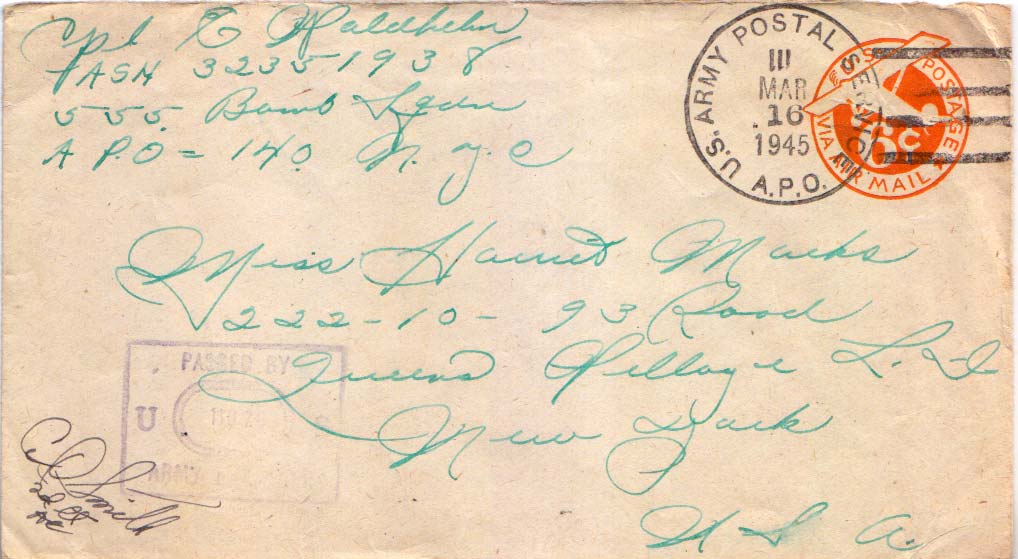 Cpl E Waldhelm
ASN 32351938
555 Bomb Sqdn
A P.O - 140 N.Y.C
U.S. ARMY POSTAL SERVICE
A.P.O.
III
MAR
16
1945
U.S. POSTAGE
6c
VIA AIR MAIL
Miss Harriet Marks
222-10- 93 Road
Queens Village L. I
New York
U S A.
PASSED BY
U S
ARMY EXAMINER
C Smith
2d Lt
AC